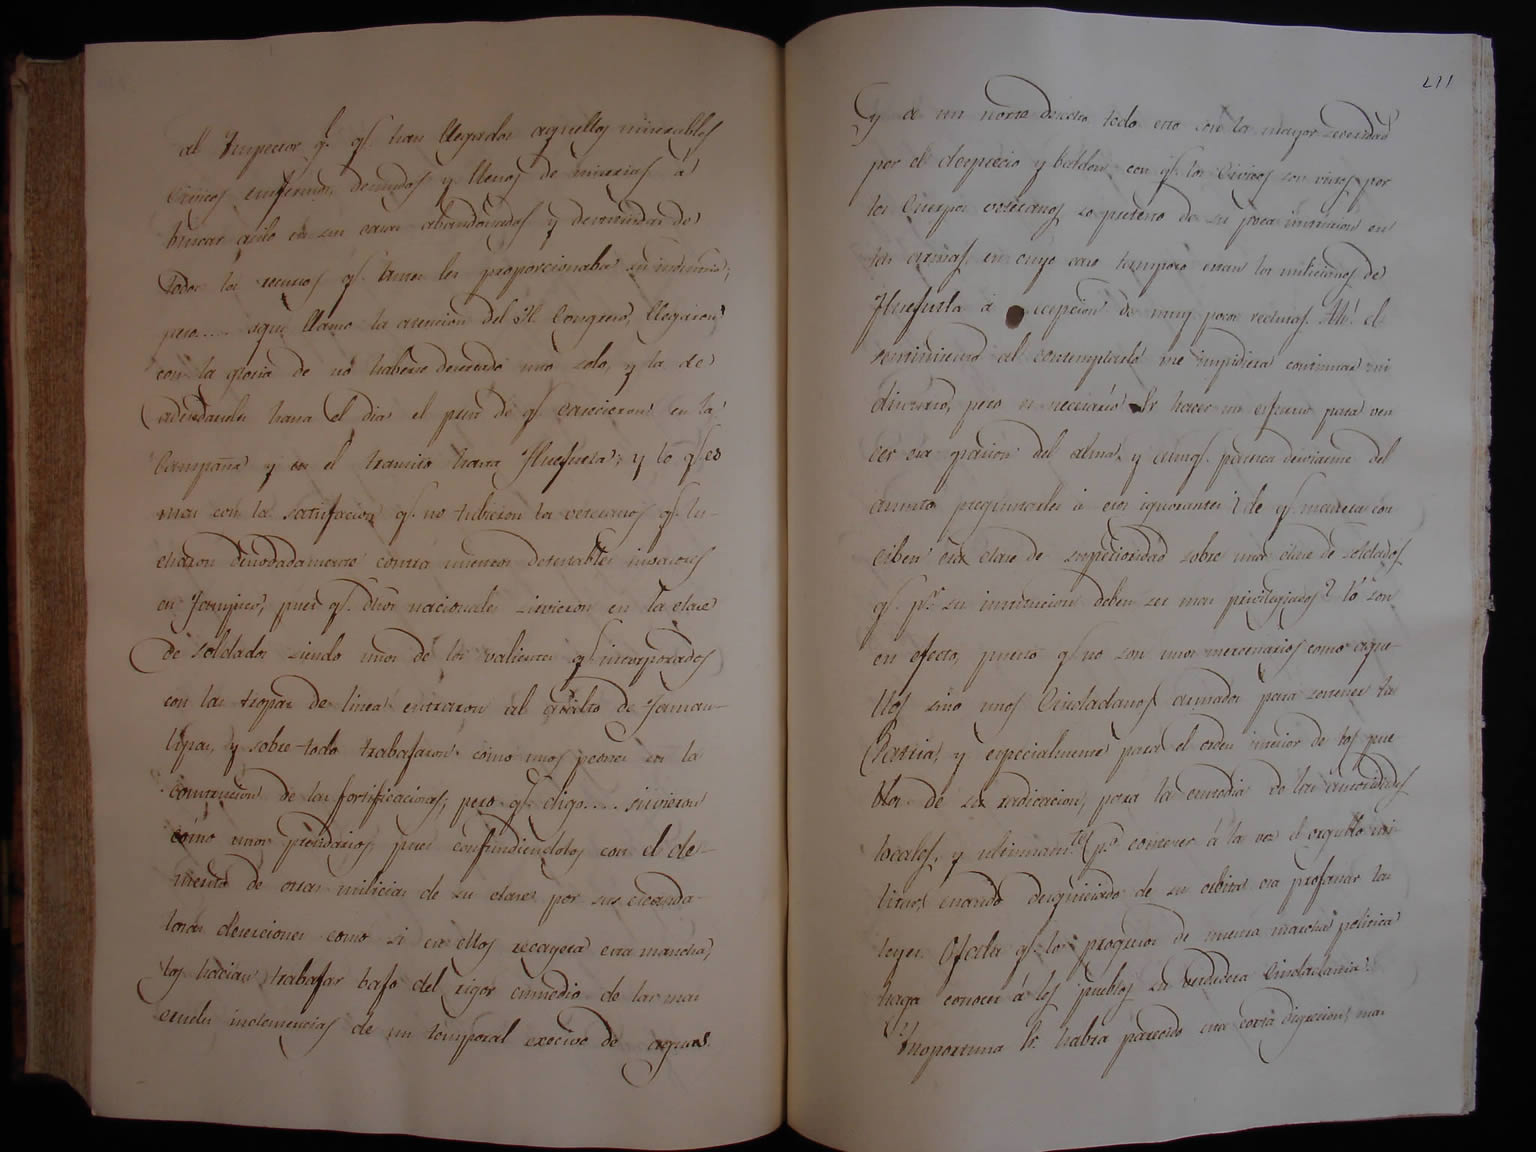 al Inspector qe. qe. han llegados aquellos miserables
Civicos enfermos, desnudos y llenos de miserias á
buscar asilo en sus casas abandonadas y desmandas de
todos los recursos qe. antes les proporcionaba su industria;
pero.... aqui llamo la atencion del H. Congreso, llegaron
con la gloria de no haberse desertado uno solo, y la de
adeudarseles hasta el dia el prest de qe. carecieron en la
Campaña y en el transito hasta Huejutla; y lo qe. es
mas con la satisfacion qe. no tubieron los veteranos qe. lu-
charon denodadamente contra nuestros detestables invasores
en Tampico, pues qe. dhos nacionales sirvieron en la clase
de soldados siendo unos de los valientes qe. incorporados
con las tropas de linea entraron al asalto de Tamau-
lipas, y sobre todo trabajaron como unos peones en la
construccion de las fortificacions; pero qe. digo.... sirvieron
como unos presidarios, pues confundiendolos con el de-
merito de otras milicias de su clase por sus escanda-
losas deserciones como si en ellos recayera esta mancha,
los hacian trabajar bajo del rigor enmedio de las mas
crueles inclemencias de un temporal excecivo de aguas
211
y de un norte desecho todo esto con la mayor severidad
por el desprecio y baldon con qe. los Civicos son vistos por
los Cuerpos veteranos so pretesto de su poca instruccion en
las armas, en cuyo caso tampoco estan los milicianos de
Huejutla á ecepcion de muy pocos reclutas. Ah! el
sentimiento al contemplarlo me impidiera continuar mi
discurso, pero es necesario Sr. hacer un esfuerzo para ven
cer esa pasion del alma, y aunqe. paresca desviarme del
asunto preguntarles á esos ignorantes ¿de qe. manera con
ciben esa clase de superioridad sobre una clase de soldados
qe. pr. su institucion deben ser mas privilegiados? Lo son
en efecto, puesto qe. no son unos mercenarios como aque-
llos sino unos Ciudadanos armados para sostener la
Patria, y especialmente para el orden interior de los pue
blos de su radicacion, para la custodia de las autoridades
locales, y ultimamte. pa. contener á la vez el orgullo mi-
litar, cuando desquiciado de su orbita osa profanar las
leyes. Ojala qe. los progresos de nuestra marcha politica
haga conocer á los pueblos su verdadera Ciudadania.
Inoportuna Sr. habra parecido esta corta digrecion, mas